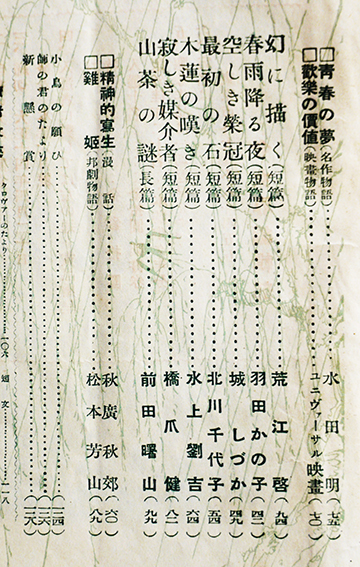 □靑春の夢(名作物語)……水田明(七五)
□歡樂の價値(映畫物語)……ユニヴァーサル映畫(七〇)
幻に描く(短篇)……荒江啓(九四)
春雨降る夜(短篇)……羽田かの子(四二)
空しき榮冠(短篇)……城しづか(四九)
最初の石(短篇)……北川千代子(五四)
木蓮の嘆き(短篇)……水上劉吉(六四)
寂しき媒介者(短篇)……橋爪健(八二)
山茶の謎(長篇)……前田曙山(九九)
□精神的寫生(漫話)……秋廣秋郊(六〇)
□雞姬(邦劇物語)……松本芳山(八九)
小鳥の願ひ……(一二四)
師の君のたより……(一二六)
新懸賞……(一二八)
クロヴァーのたより……一〇六
通文……一一八